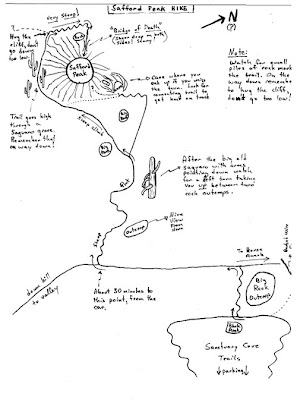 Safford Peak HIKE
Very Steep!
Rock
"Bridge of Death"
Sheer drop on both
Sides! Slung
N
(?)
Hug the
cliff, don't
go down
too low!
Safford
Peak
Cave where you
end up if you miss
the turn. Look for
connecting trail to
get back on track
Note:
Watch for small
piles of rock mark
the trail. On the
way down remember
to hug the cliff,
don't go too low!
Trail goes high
through a
Saguaro grove.
Remember that
on way down!
Steep climb
Big
Rock
After the big old
saguaro with arms
pointing down watch
for a left turn taking
you up between two
rock outcrops.
Outcrop
Nice
View
From
Here
Steep
To Ranse
Ranch
down hill
to valley
About 30 minutes to
this point, from the
car.
Big
Rock
Outcrop
Start Rock
Sanctuary Cove
Trails
parking